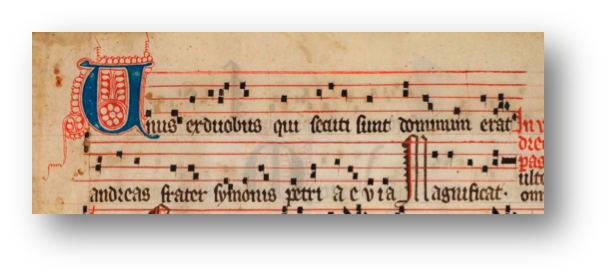 Unus ex duobus qui secuti sunt dominum erat
andreas frater symonis petri a e v i a Magnificat.
In v
dre
pas
ulte
om